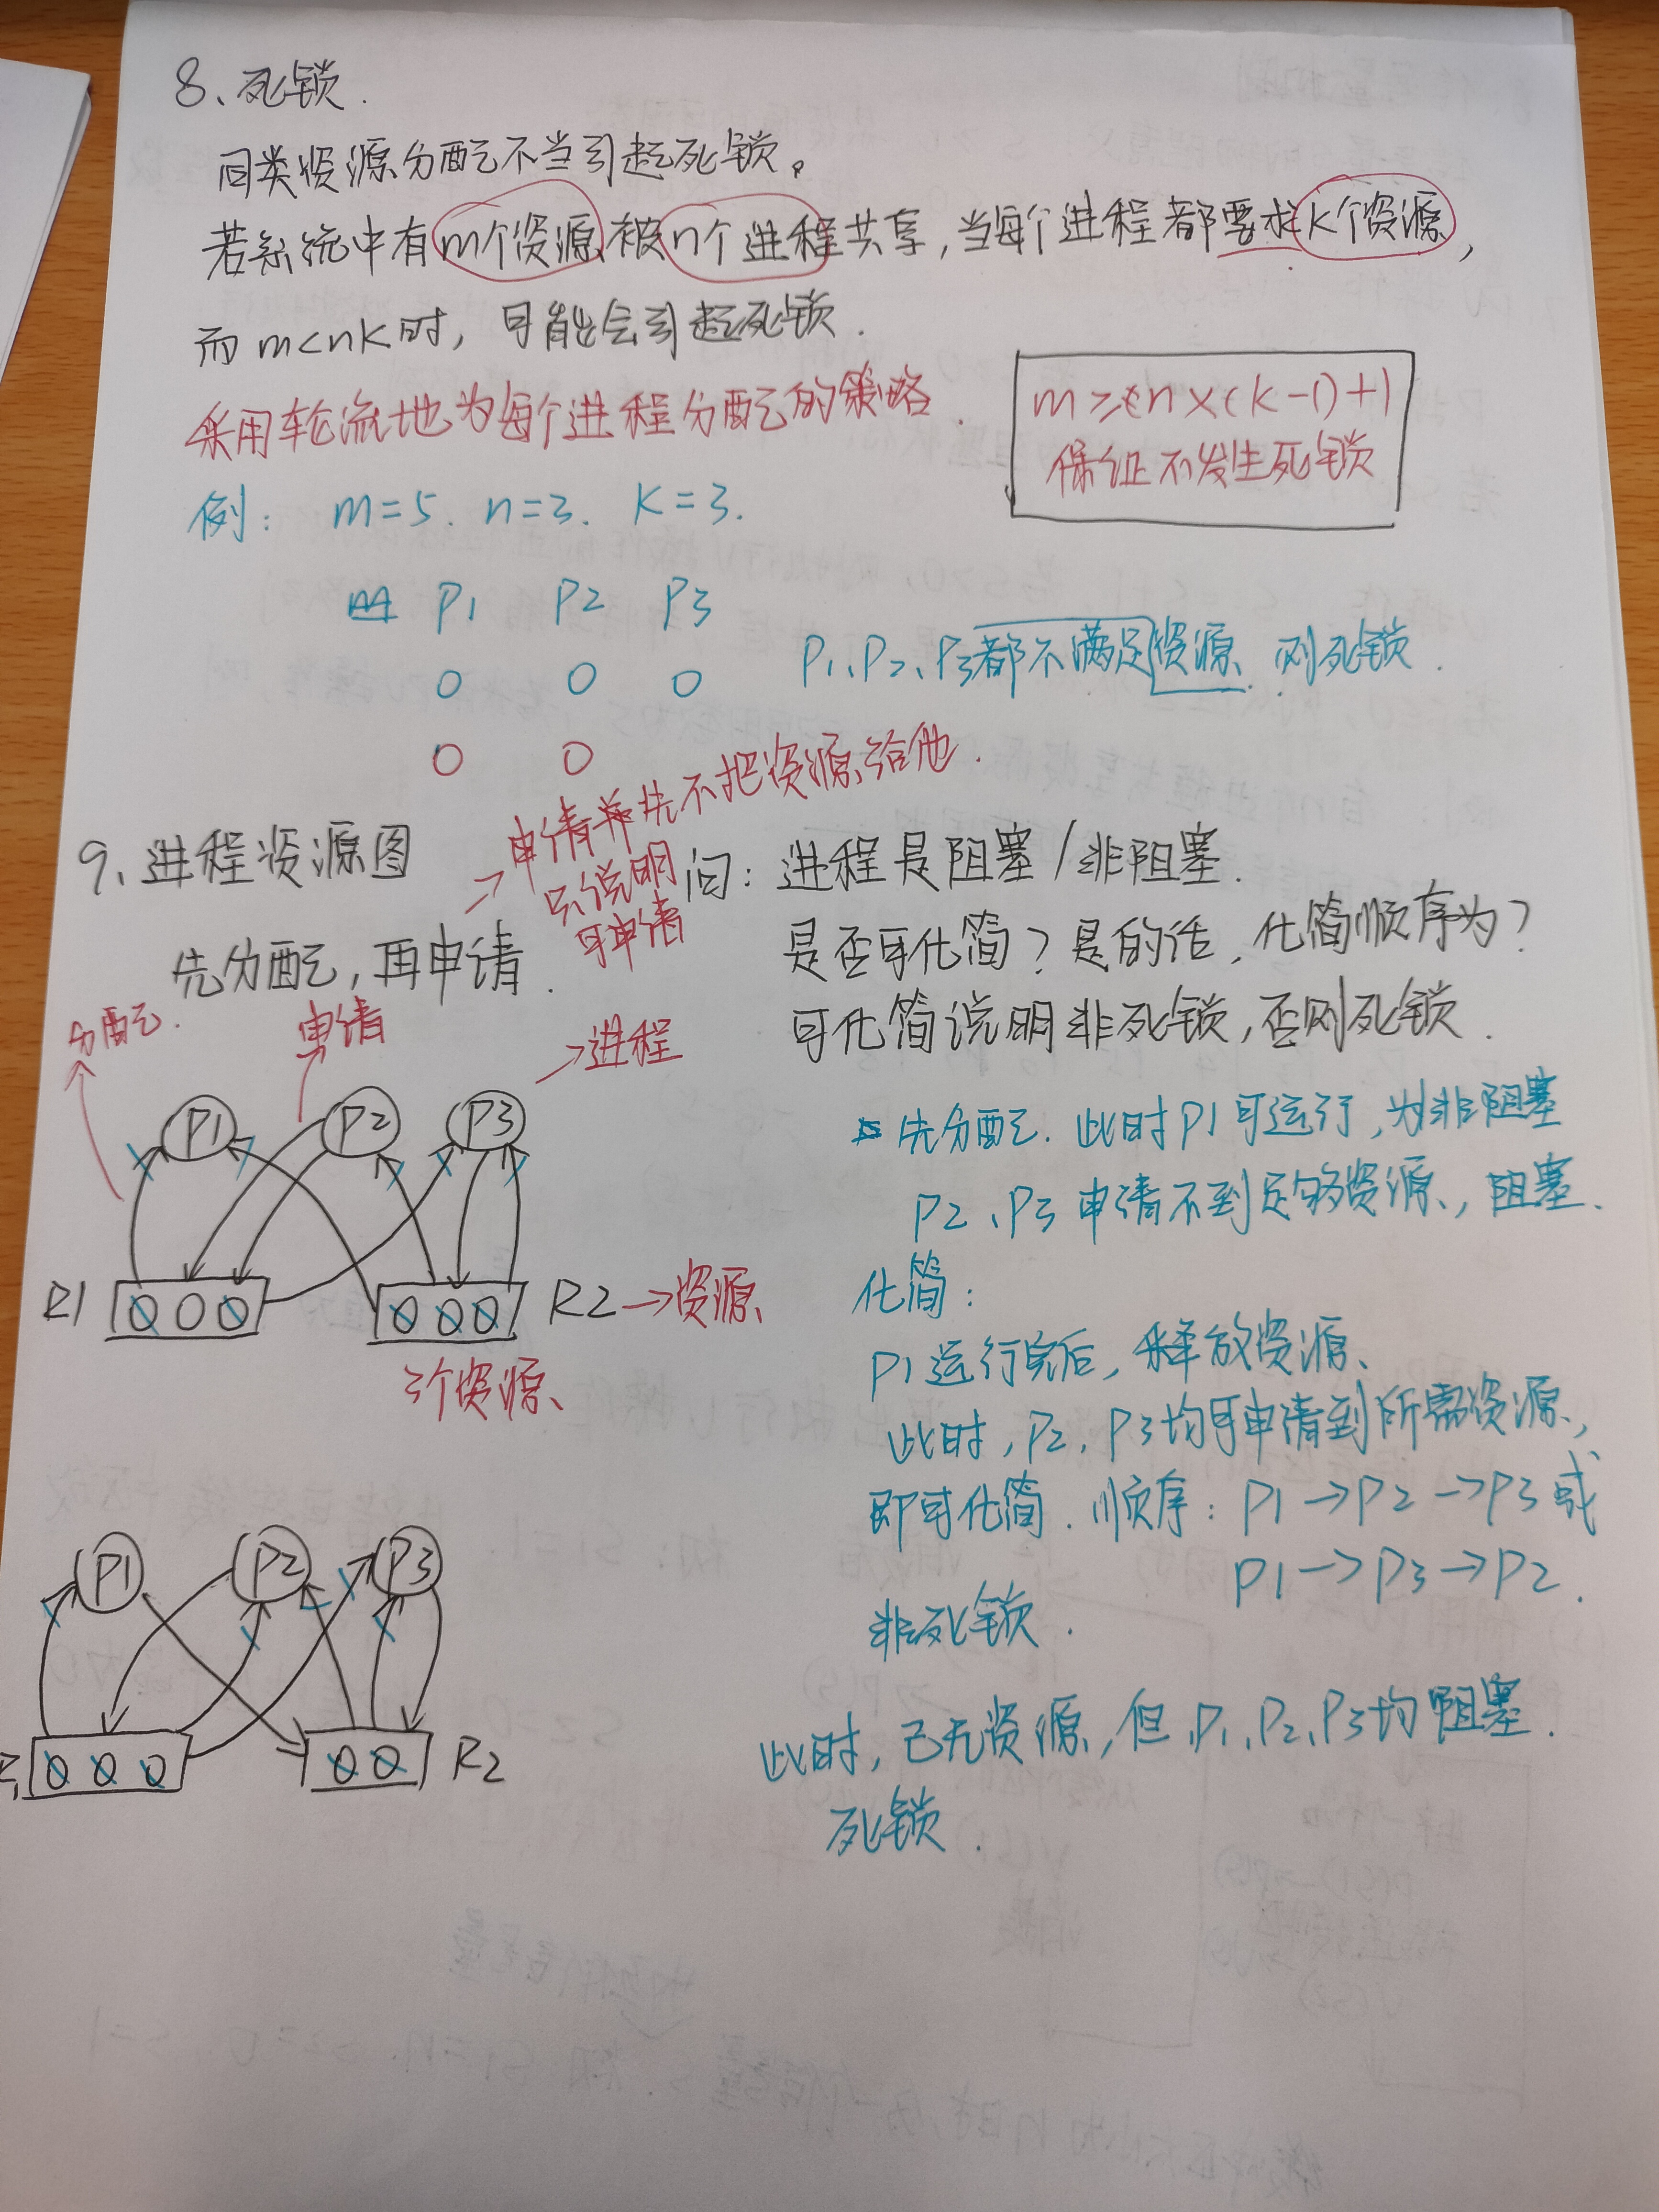 8、死锁.
同类资源分配不当引起死锁。
若系统中有m个资源被n个进程共享,当每个进程都要求K个资源,
而m<nK时,可能会引起死锁.
采用轮流地为每个进程分配的策略.
m≥n×(k-1)+1
保证不发生死锁
例: m=5. n=3. K=3.
P1 P2 P3
O O O
P1、P2、P3都不满足资源.则死锁.
O O
9、进程资源图
先分配,再申请.
→申请并先不把资源给他.
只说明
可申请
问:进程是阻塞/非阻塞.
是否可化简?是的话,化简顺序为?
可化简说明非死锁,否则死锁.
分配.
申请
→进程
P1 P2 P3
R1
O O O
O O O
R2→资源
3个资源
先分配.此时P1可运行,为非阻塞
P2、P3申请不到足够资源,阻塞.
化简:
P1运行完后,释放资源
此时,P2,P3均可申请到所需资源,
即可化简.顺序:P1→P2→P3或
P1→P3→P2.
非死锁.
P1 P2 P3
O O O
O O
R2
此时,已无资源,但P1、P2、P3均阻塞.
死锁.